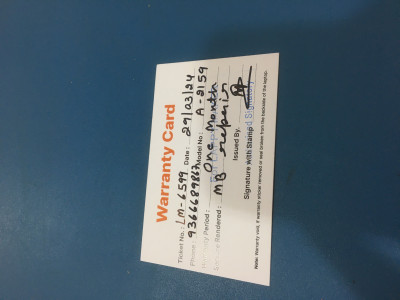 Warranty Card
Ticket No.: LM-6599 Date: 29/03/24
Phone: 9366689867 Model No: A-2159
Warranty Period: One Month
Service Rendered: MB repairing
Issued By.
Signature with Stamp
Note: Warranty void, if warranty sticker removed or seal broken from the backside of the laptop.